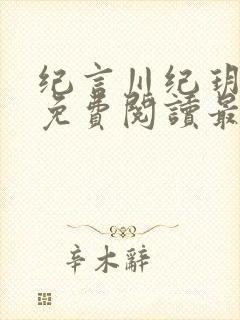 纪言川纪玥
免費閱讀最
辛木辭